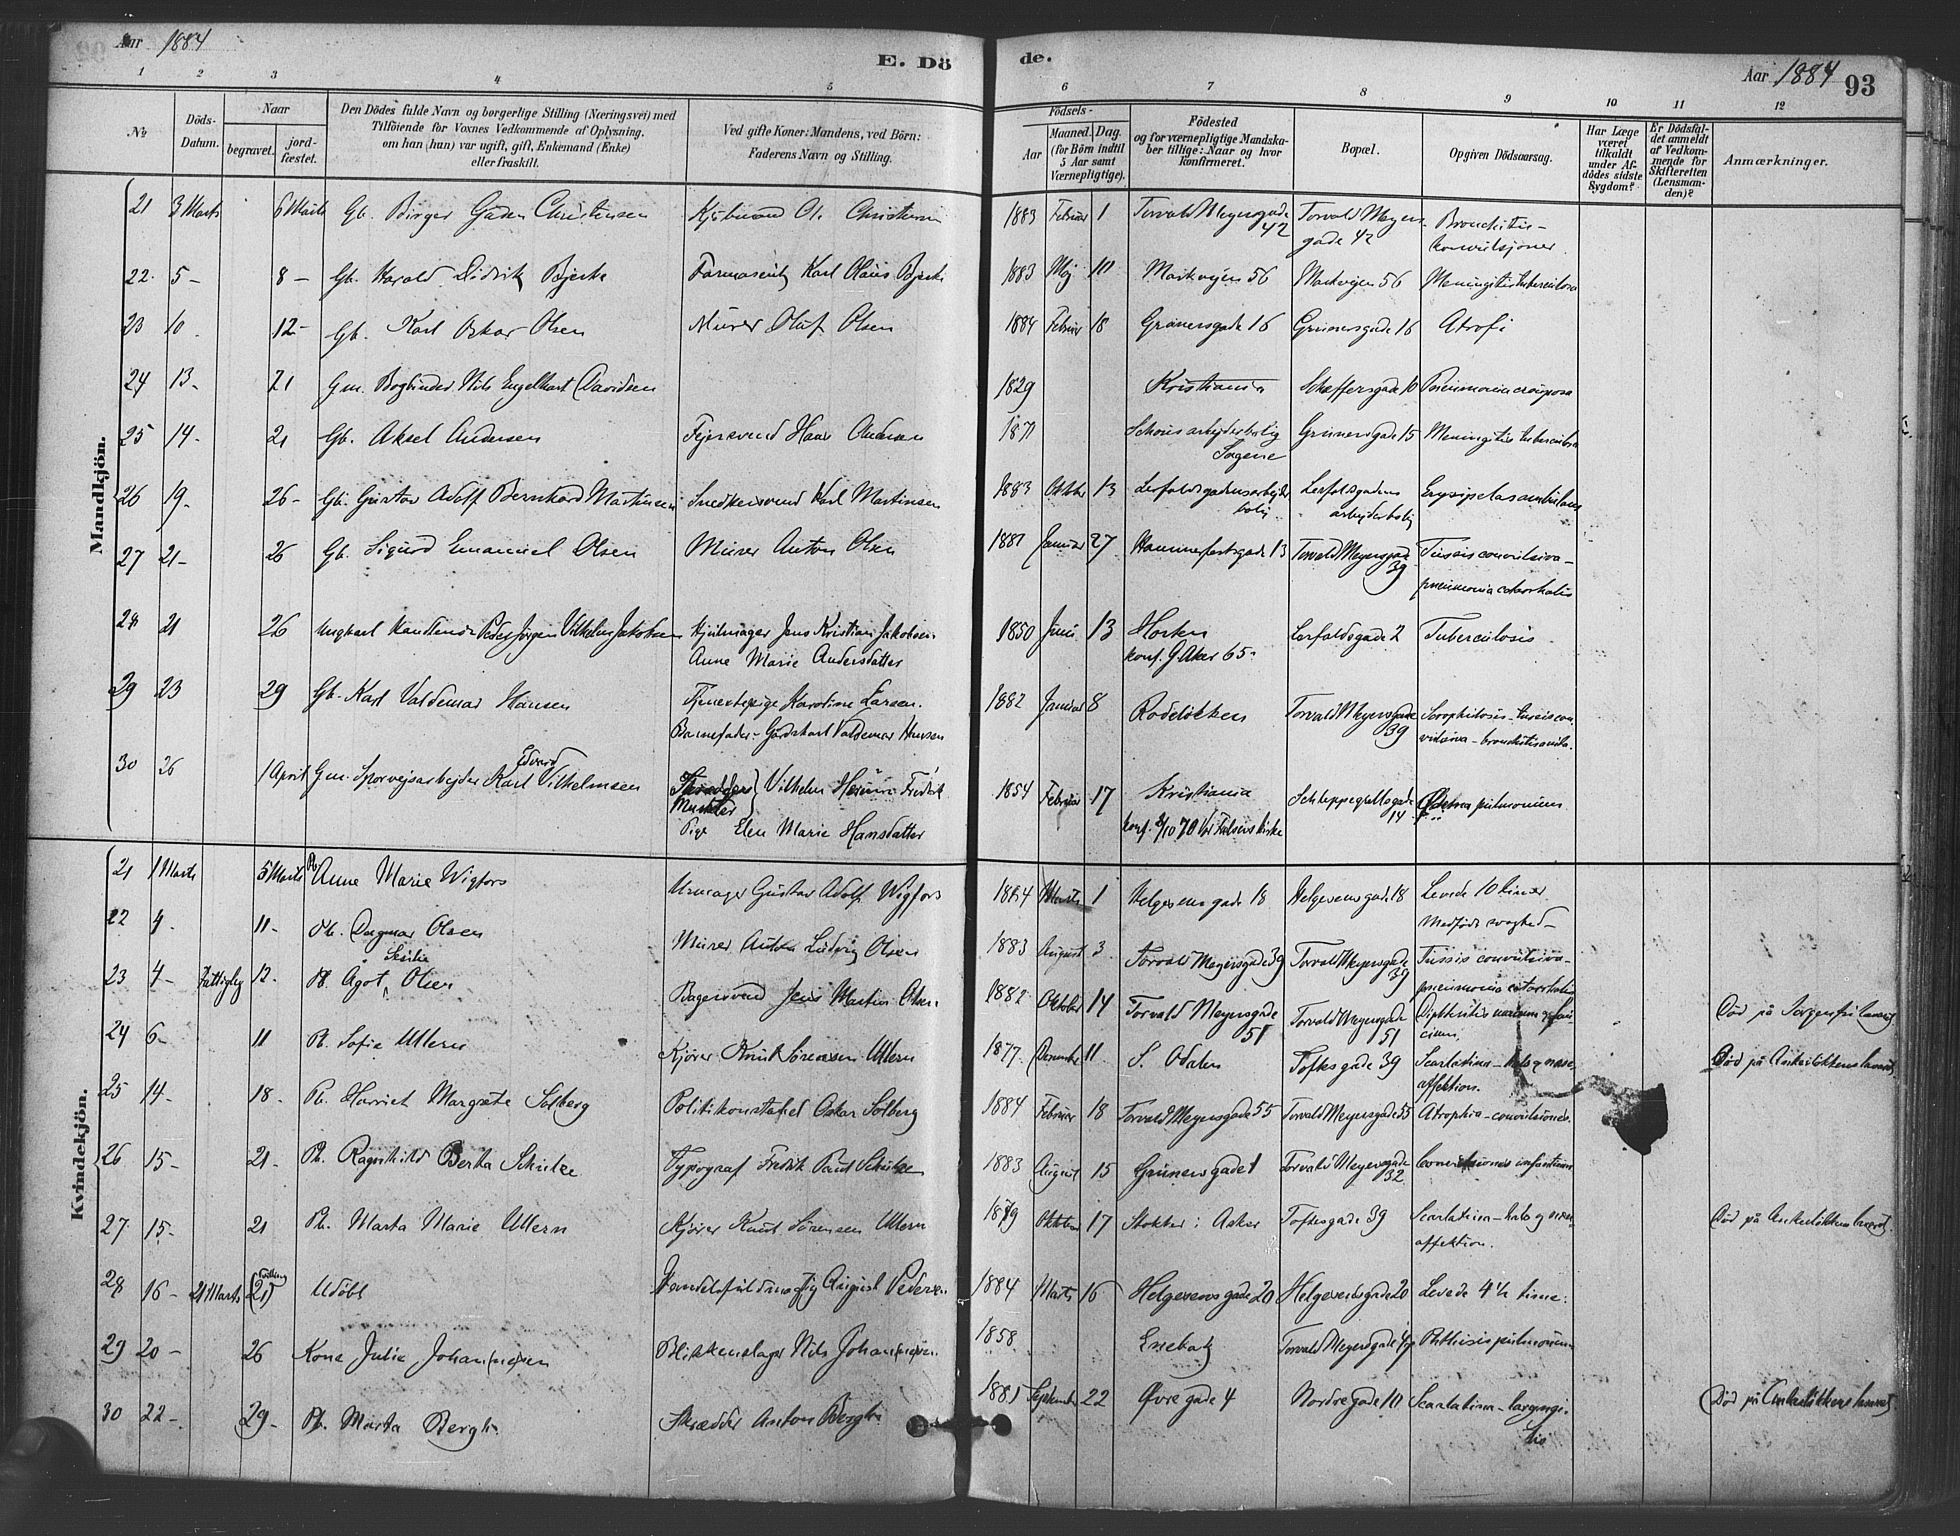 Aar 1884
E. Dö de.
Aar 1884 93
1 2 3 4 5 6 7 8 9 10 11 12
No
Döds-Datum.
Naar
begravet.
jord-fæstet.
Den Dödes fulde Navn og borgerlige Stilling (Næringsvei) med
Tilföiende for Voxnes Vedkommende af Oplysning,
om han (hun) var ugift, gift, Enkemand (Enke)
eller fraskilt.
Ved gifte Koner: Mandens, ved Börn:
Faderens Navn og Stilling.
Födsels-
Aar
Maaned. Dag.
(for Börn indtil
5 Aar samt
Værnepligtige).
Födested
og for værnepligtige Mandska-
ber tillige: Naar og hvor
konfirmeret.
Bopæl.
Opgiven Dödsaarsag.
Har Læge
været
tilkaldt
under Af-
dödes sidste
Sygdom?
Er Dödsfal-
det anmeldt
af Vedkom-
mende for
Skifteretten
(Lensman-
den)?
Anmærkninger.
Mandkjön.
21 3 Marts 6 Marts Gb. Birger Christensen Ole Christensen 1883 Februar 1 Torvald Meyersgade 42 Torvald Meyersgade 42 Bronchitis – konvulsjoner
22 5 – 8 – Gb. Harald Didrik Bjerke Farmaseut Karl Olaus Bjerke 1883 Maj 10 Markvejen 56 Markvejen 56 Meningitis tuberculosa
23 10 12 – Gb. Karl Oskar Olsen Murer Oluf Olsen 1884 Februar 18 Grünersgade 16 Grünersgade 16 Atrofi
24 13 – 21 Gm. Bogbinder Nils Engelhart Davidsen 1829 Kristiania Schæffersgade 10 Pneumonia crouposa
25 14 – 21 Gb. Aksel Andersen Fejersvend Hans Andersen 1871 Schous arbejderbolig Sagene Grünersgade 15 Meningitis tuberculosa
26 19 – 26 – Gb. Gustav Adolf Bernhard Martinsen Snedkersvend Karl Martinsen 1883 Oktbr 13 Lerfaldsgadens arbejderbolig Lerfaldsgadens arbejderbolig Erysipelas ambulans
27 21 – 26 Gb. Sigurd Emanuel Olsen Murer Anton Olsen 1881 Januar 27 Hammerfestgade 13 Torvald Meyersgade 39 Tussis convulsiva – pneumonia catarrhalis
28 21 26 Ungkarl Peder Jørgen Vilhelm Jakobsen Hjulmager Jens Kristian Jakobsen Anne Marie Andersdatter 1850 Juni 13 Horten konf. Aker 65 Lerfaldsgade 2 Tuberculosis
29 23 29 Gb. Karl Valdemar Hansen Tjenestepige Karoline Larsen. Barnefader – Gårdskarl Valdemar Hansen 1882 Januar 8 Rodeløkken Torvald Meyersgade 39 Scrophulosis – tussis convulsiva –
30 26 1 April Gm. Sporvejsarbejder Karl Edvard Vilhelmsen Vilhelm Fredrik Pige Elen Marie Hansdatter 1854 Februar 17 Kristiania konf. 2/10 70 Vor Frelsers kirke Schleppegrellsgade 14 Ødema pulmonum
Kvindekjön.
21 1 Marts 5 Marts Pb. Anne Marie Wigfors Urmager Gustav Adolf Wigfors 1884 Marts 1 Helgesensgade 18 Helgesensgade 18 Levede 10 timer Medfødt svaghed –
22 4. 11 – Pb. Dagmar Olsen Murer Anton Ludvig Olsen 1883 August 3 Torvald Meyersgade 39 Torvald Meyersgade 39 Tussis convulsiva – pneumonia catarrhalis
23 4 – 12. Pb. Agot Sesilie Olsen Bagersvend Jens Martin Olsen 1882 Oktober 14 Torvald Meyersgade 51 Torvald Meyersgade 51 Diphtheritis narium & faucium, Død på Sorgenfri lasaret
24 6 – 11 Pb. Sofie Ullern Kjører Knut Sørensen Ullern 1877 December 11 S. Odalen Toftesgade 39 Scarlatina – hals og næse affektion. Død på Ankerløkkens lasaret
25 14 – 18 – Pb. Harriet Margrete Solberg Politikonstabel Oskar Solberg 1884 Februar 18 Torvald Meyersgade 55 Torvald Meyersgade 55 Atrophia – convulsiones.
26 15 – 21 – Pb. Ragnhild Berta Schulze Typograf Fredrik Paul Schulze 1883 August 15 Grünersgade 1 Torvald Meyersgade 32 Convulsiones infantum
27 15 – 21 Pb. Marta Marie Ullern Kjører Knut Sørensen Ullern 1879 Oktober 17 Stokker i Asker Toftesgade 39 Scarlatina – hals og næse affektion. Død på Ankerløkkens lasaret
28 16 – 21 Marts (21) Udøbt Handelsfuldmægtig August Pedersen 1884 Marts 16 Helgesensgade 20 Helgesensgade 20 Levede 4½ time.
29 20 – 26 Kone Julie Johannesen Blikkenslager Nils Johannesen 1858. Enebak Torvald Meyersgade Phthisis pulmonum
30 22 – 29 – Pb. Marta Bergh. Skrædder Anton Bergh 1881 September 22 Øvregade 4 Nordregade 10 Scarlatina – laryngitis (Død på Ankerløkkens lasaret)